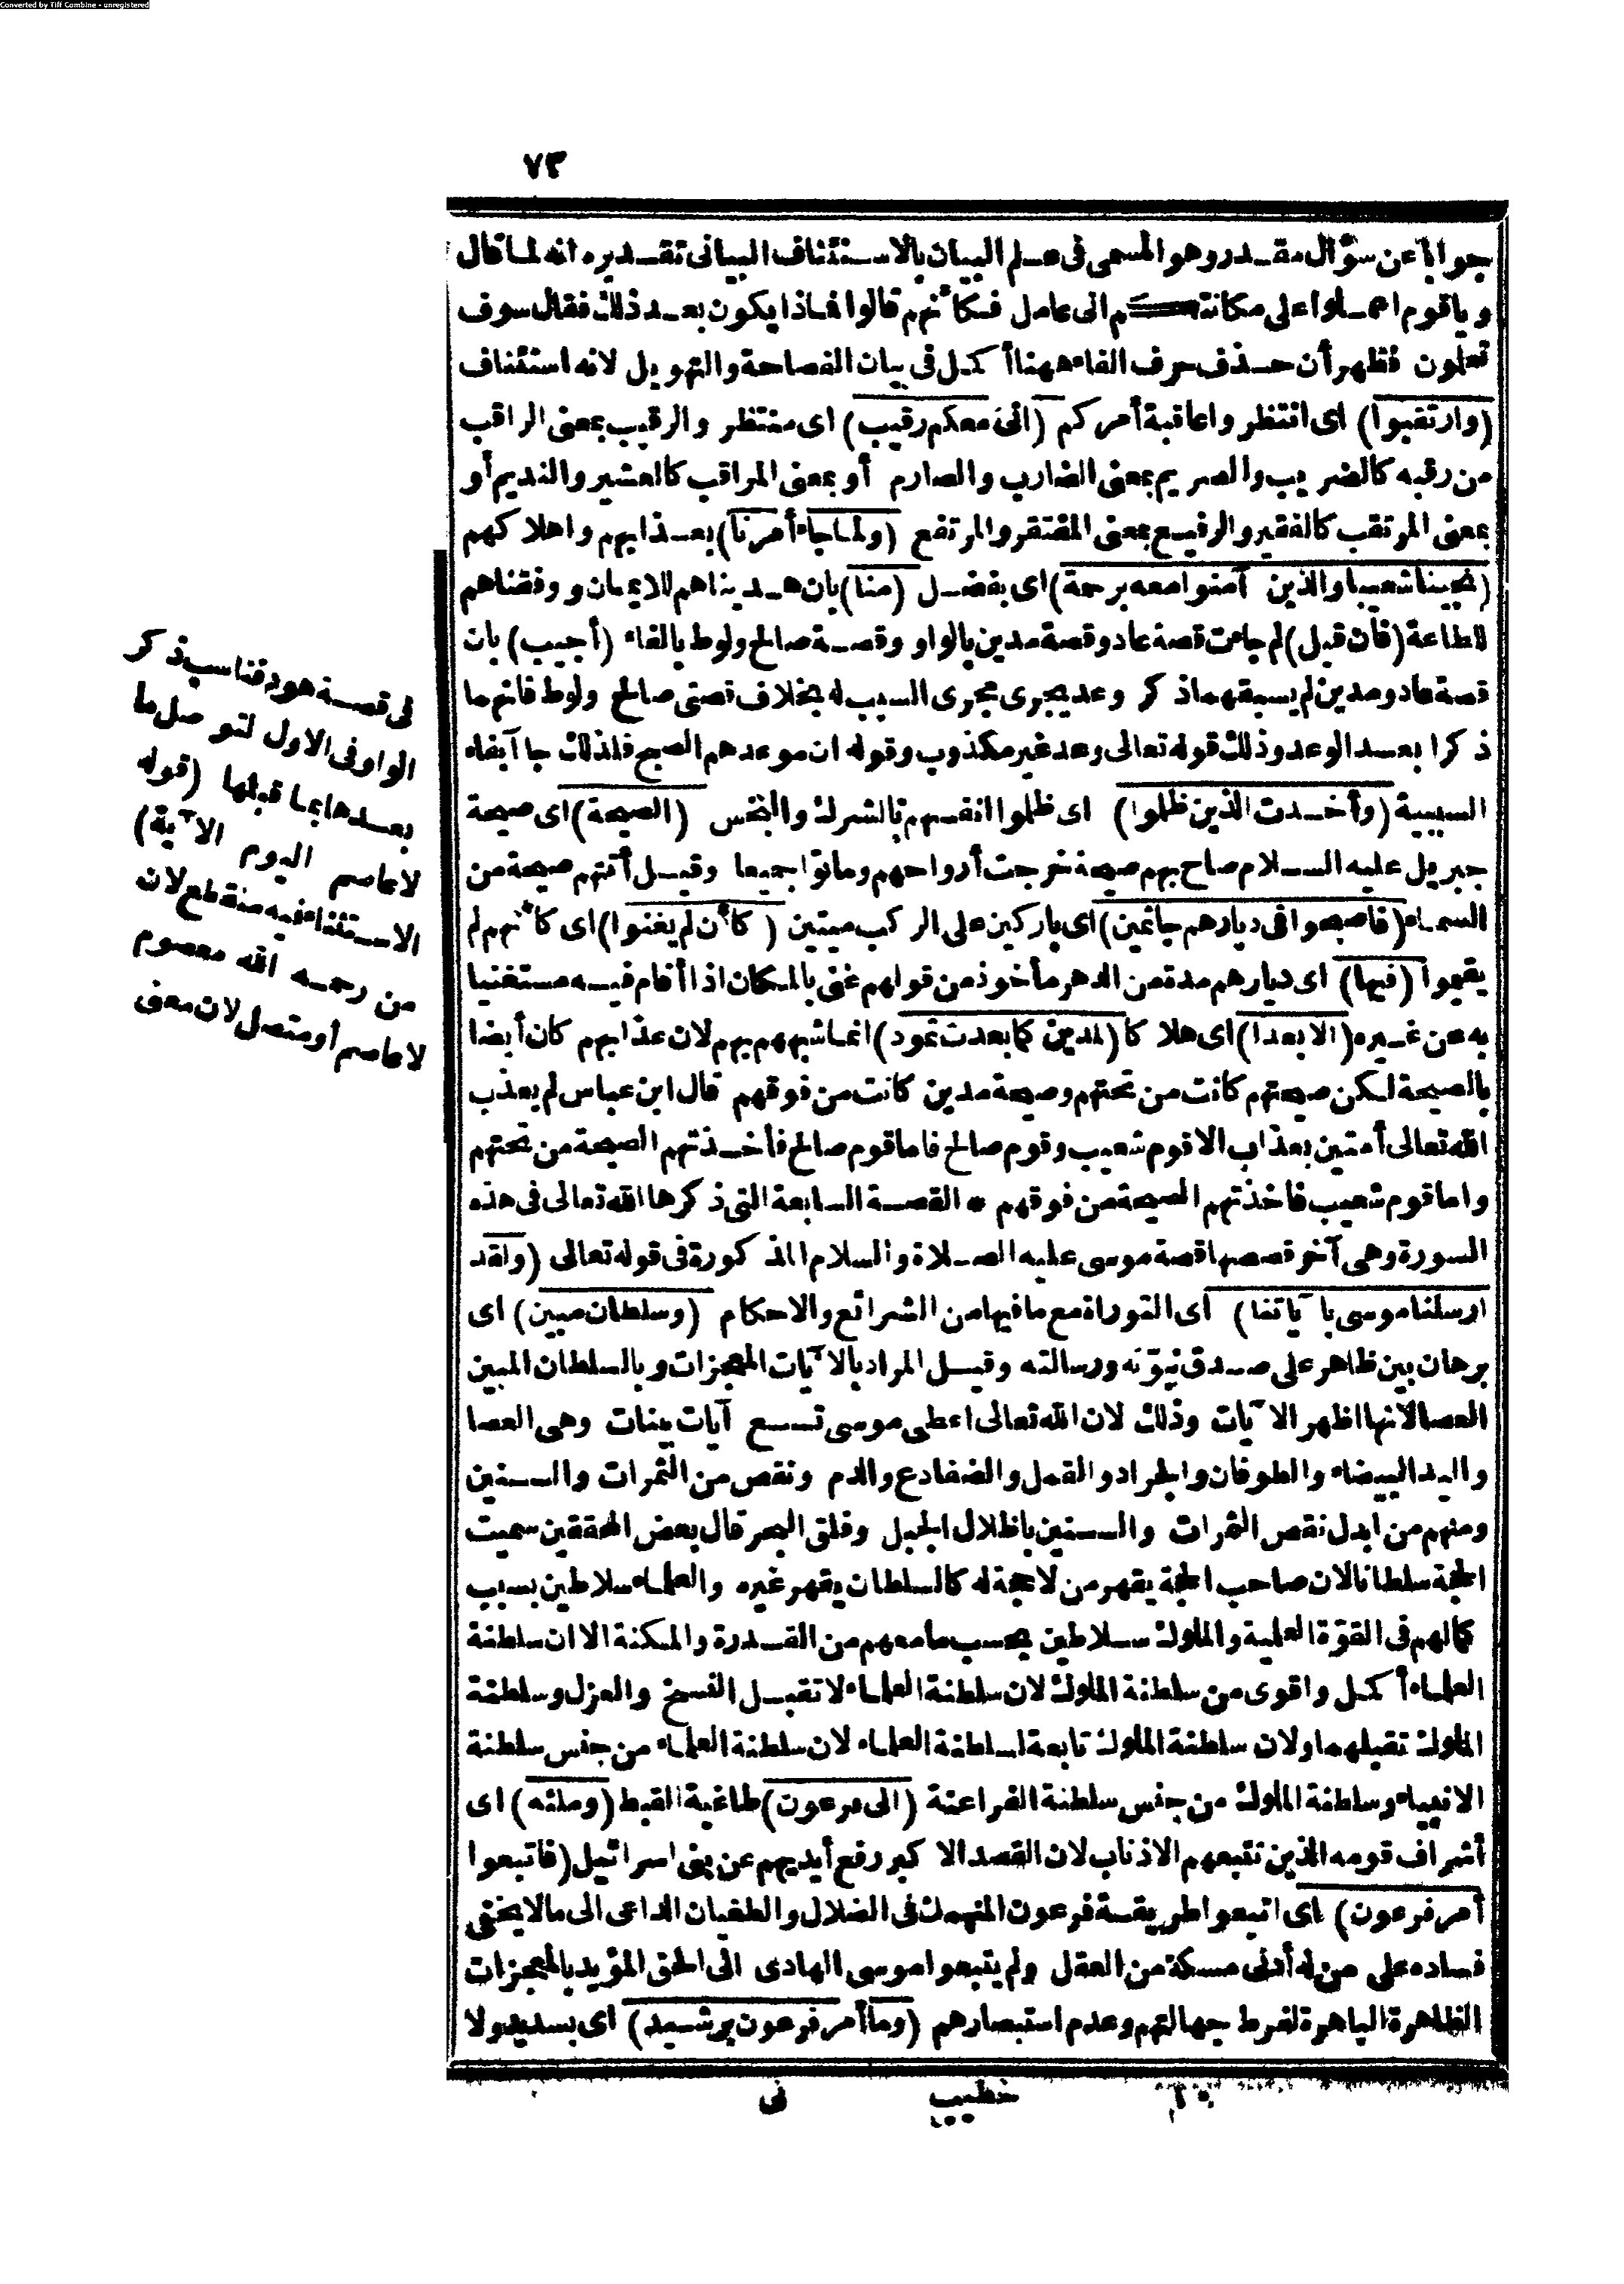 Converted by Tiff Combine - unregistered
٧٣
جوابا عن سؤال مقدر وهو المسمى فى علم البيان بالاستئناف البيانى تقديره انه لما قال
ويا قوم اعملوا على مكانتكم انى عامل فكأنهم قالوا فماذا يكون بعد ذلك فقال سوف
تعلمون فظهر أن حذف حرف الفاء ههنا أكمل فى بيان الفصاحة والتهويل لانه استئناف
(وارتقبوا) اى انتظروا عاقبة أمركم (انى معكم رقيب) اى منتظر والرقيب بمعنى الراقب
من رقبه كالضريب والصريم بمعنى الضارب والصارم أو بمعنى المراقب كالعشير والنديم أو
بمعنى المرتقب كالفقير والرفيع بمعنى المفتقر والمرتفع (ولما جاء أمرنا) بعذابهم واهلاكهم
(نجينا شعيبا والذين آمنوا معه برحمة) اى بفضل (منا) بان هديناهم للايمان ووفقناهم
للطاعة (فان قيل) لم جاءت قصة عاد وقصة مدين بالواو وقصة صالح ولوط بالفاء (أجيب) بان
قصة عاد ومدين لم يسبقهما ذكر وعد يجرى مجرى السبب له بخلاف قصتى صالح ولوط فانهما
ذكرا بعد الوعد وذلك قوله تعالى وعد غير مكذوب وقوله ان موعدهم الصبح فلذلك جاآ بفاء
السببية (وأخذت الذين ظلموا) اى ظلموا انفسهم بالشرك والبخس (الصيحة) اى صيحة
جبريل عليه السلام صاح بهم صيحة خرجت أرواحهم وماتوا جميعا وقيل أتتهم صيحة من
السماء (فاصبحوا فى ديارهم جاثمين) اى باركين على الركب ميتين (كأن لم يغنوا) اى كأنهم لم
يقيموا (فيها) اى ديارهم مدة من الدهر مأخوذ من قولهم غنى بالمكان اذا أقام فيه مستغنيا
به عن غيره (الا بعدا) اى هلاكا (لمدين كما بعدت ثمود) انما شبههم بهم لان عذابهم كان أيضا
بالصيحة لكن صيحتهم كانت من تحتهم وصيحة مدين كانت من فوقهم قال ابن عباس لم يعذب
الله تعالى أمتين بعذاب الا قوم شعيب وقوم صالح فاما قوم صالح فأخذتهم الصيحة من تحتهم
واما قوم شعيب فاخذتهم الصيحة من فوقهم * القصة السابعة التى ذكرها الله تعالى فى هذه
السورة وهى آخر قصصها قصة موسى عليه الصلاة والسلام المذكورة فى قوله تعالى (ولقد
ارسلنا موسى بآياتنا) اى التوراة مع ما فيها من الشرائع والاحكام (وسلطان مبين) اى
برهان بين ظاهر على صدق نبوّته ورسالته وقيل المراد بالآيات المعجزات وبالسلطان المبين
العصا لانها اظهر الآيات وذلك لان الله تعالى اعطى موسى تسع آيات بينات وهى العصا
واليد البيضاء والطوفان والجراد والقمل والضفادع والدم ونقص من الثمرات والسنين
ومنهم من ابدل نقص الثمرات والسنين باظلال الجبل وفلق البحر قال بعض المحققين سميت
الحجة سلطانا لان صاحب الحجة يقهر من لا حجة له كالسلطان يقهر غيره والعلماء سلاطين بسبب
كمالهم فى القوّة العلمية والملوك سلاطين بحسب ما معهم من القدرة والمكنة الا ان سلطنة
العلماء أكمل واقوى من سلطنة الملوك لان سلطنة العلماء لا تقبل الفسخ والعزل وسلطنة
الملوك تقبلهما ولان سلطنة الملوك تابعة لسلطنة العلماء لان سلطنة العلماء من جنس سلطنة
الانبياء وسلطنة الملوك من جنس سلطنة الفراعنة (الى فرعون) طاغية القبط (وملئه) اى
أشراف قومه الذين تتبعهم الاذناب لان القصد الاكبر رفع أيديهم عن بنى اسرائيل (فاتبعوا
أمر فرعون) اى اتبعوا طريقة فرعون المنهمك فى الضلال والطغيان الداعى الى ما لا يخفى
فساده على من له أدنى مسكة من العقل ولم يتبعوا موسى الهادى الى الحق المؤيد بالمعجزات
الظاهرة الباهرة لفرط جهالتهم وعدم استبصارهم (وما أمر فرعون برشيد) اى بسديد ولا
خطيب
نى
فى قصة هود فناسب ذكر
الواو فى الاول لتوصل ما
بعدها بما قبلها (قوله
لا عاصم اليوم الآية)
الاستثناء فيه منقطع لان
من رحمه الله معصوم
لا عاصم أو متصل لان معنى